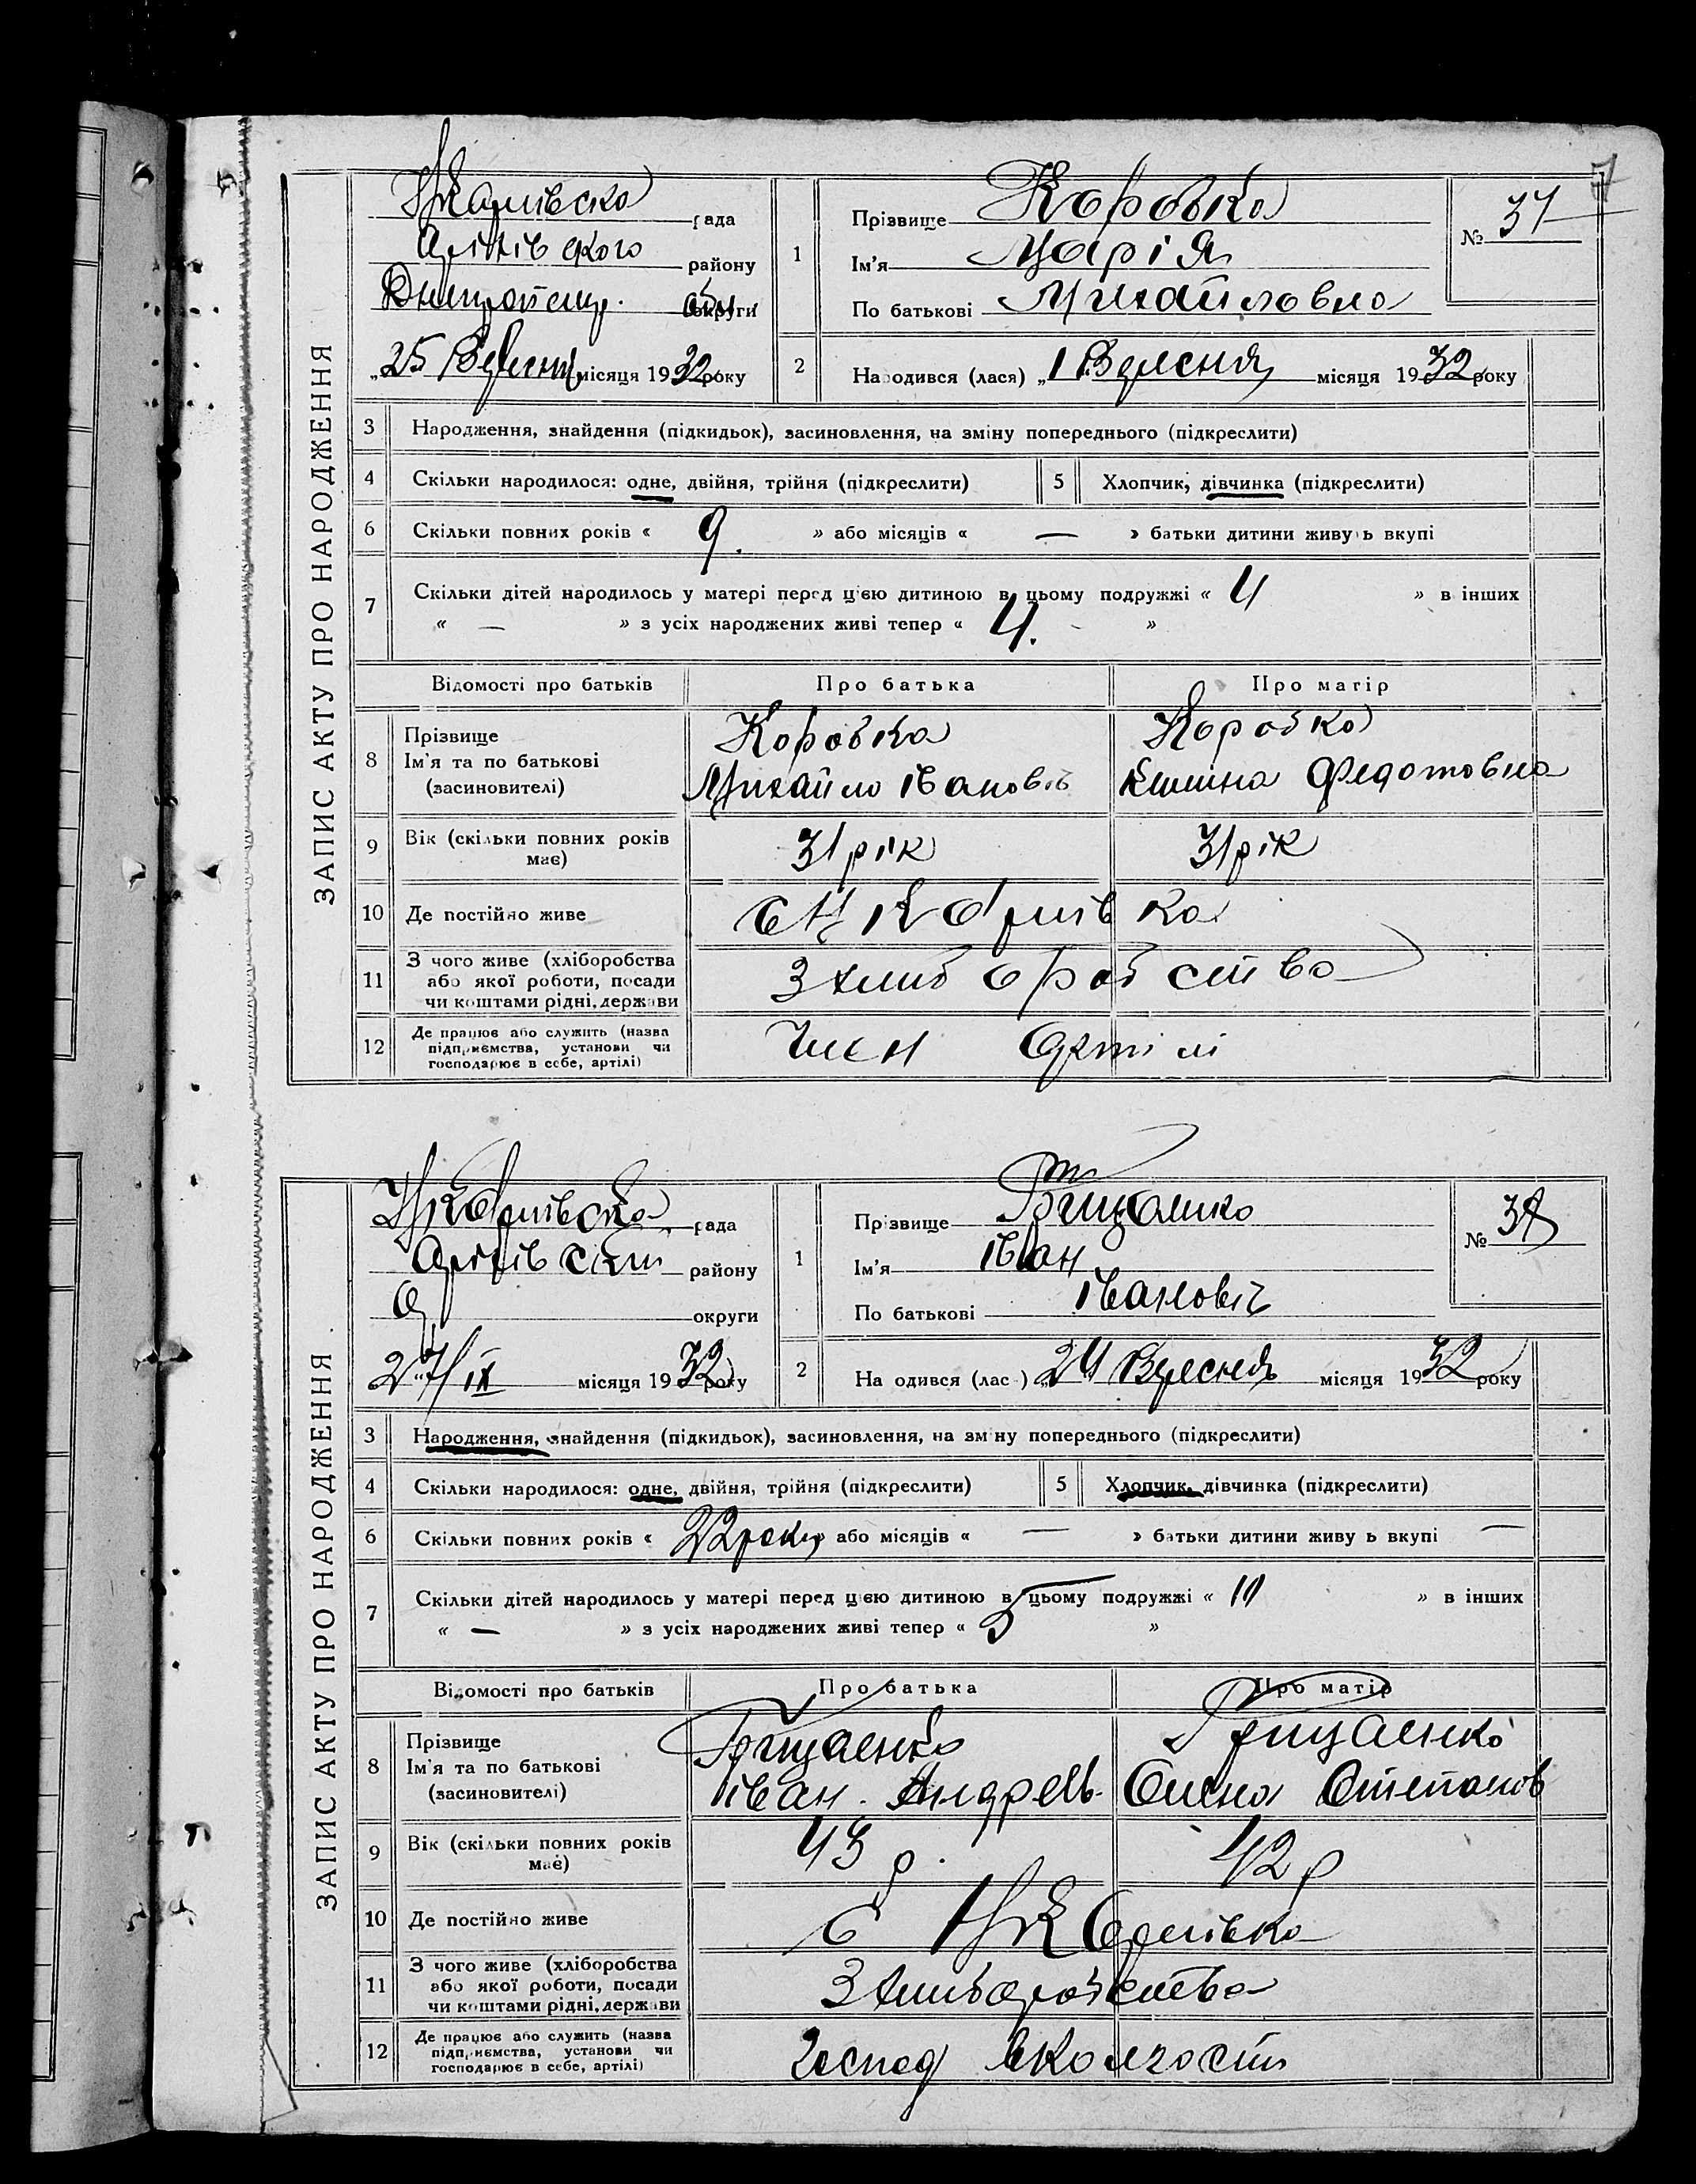 ЗАПИС АКТУ ПРО НАРОДЖЕННЯ
рада
району
Дніпропетр. обл. округи
„25 Вересня місяця 1932 року
1
Прізвище Коробка
Ім'я Марія
По батькові Михайловна
№ 37
2
Народився (лася) „1 Вересня місяця 1932 року
3 Народження, знайдення (підкидьок), засиновлення, на зміну попереднього (підкреслити)
4 Скільки народилося: одне, двійня, трійня (підкреслити)
5 Хлопчик, дівчинка (підкреслити)
6 Скільки повних років « 9. » або місяців « — » батьки дитини живуть вкупі
7 Скільки дітей народилось у матері перед цією дитиною в цьому подружжі « 4 » в інших
« — » з усіх народжених живі тепер « 4. »
Відомості про батьків Про батька Про матір
8 Прізвище
Ім'я та по батькові
(засиновителі)
Коробка
Михайло Іванович
Коробка
Федотовна
9 Вік (скільки повних років
має)
31 рік
31 рік
10 Де постійно живе
11 З чого живе (хліборобства
або якої роботи, посади
чи коштами рідні, держави
З хліборобства
12 Де працює або служить (назва
підприємства, установи чи
господарює в себе, артілі)
Член Артілі
ЗАПИС АКТУ ПРО НАРОДЖЕННЯ
рада
району
округи
27/IX місяця 1932 року
1
Прізвище Грищаенко
Ім'я Іван
По батькові Івановіч
№ 38
2
Народився (лась) „24 Вересня місяця 1932 року
3 Народження, знайдення (підкидьок), засиновлення, на зміну попереднього (підкреслити)
4 Скільки народилося: одне, двійня, трійня (підкреслити)
5 Хлопчик, дівчинка (підкреслити)
6 Скільки повних років « 22 роки » або місяців « — » батьки дитини живуть вкупі —
7 Скільки дітей народилось у матері перед цією дитиною в цьому подружжі « 10 » в інших
« — » з усіх народжених живі тепер « 5 »
Відомості про батьків Про батька Про матір
8 Прізвище
Ім'я та по батькові
(засиновителі)
Грищаенко
Іван Андреев.
Грищаенко
Олена Степанов
9 Вік (скільки повних років
має)
43 р.
42 р
10 Де постійно живе
11 З чого живе (хліборобства
або якої роботи, посади
чи коштами рідні, держави
З хліборобства
12 Де працює або служить (назва
підприємства, установи чи
господарює в себе, артілі)
Господ